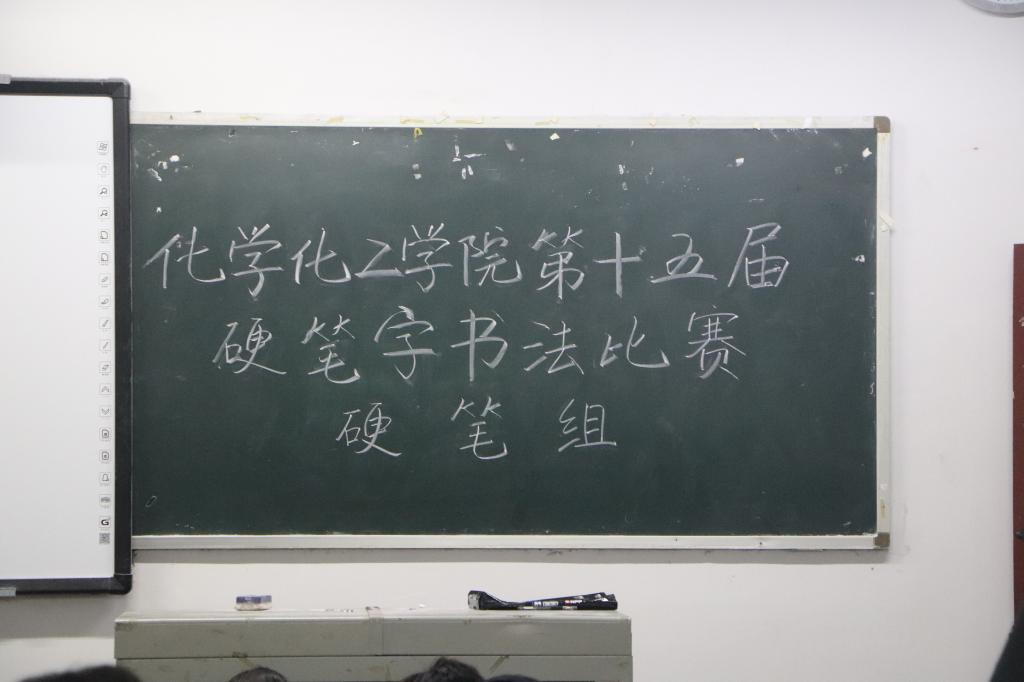 化学化工学院第十五届
硬笔字书法比赛
硬笔组